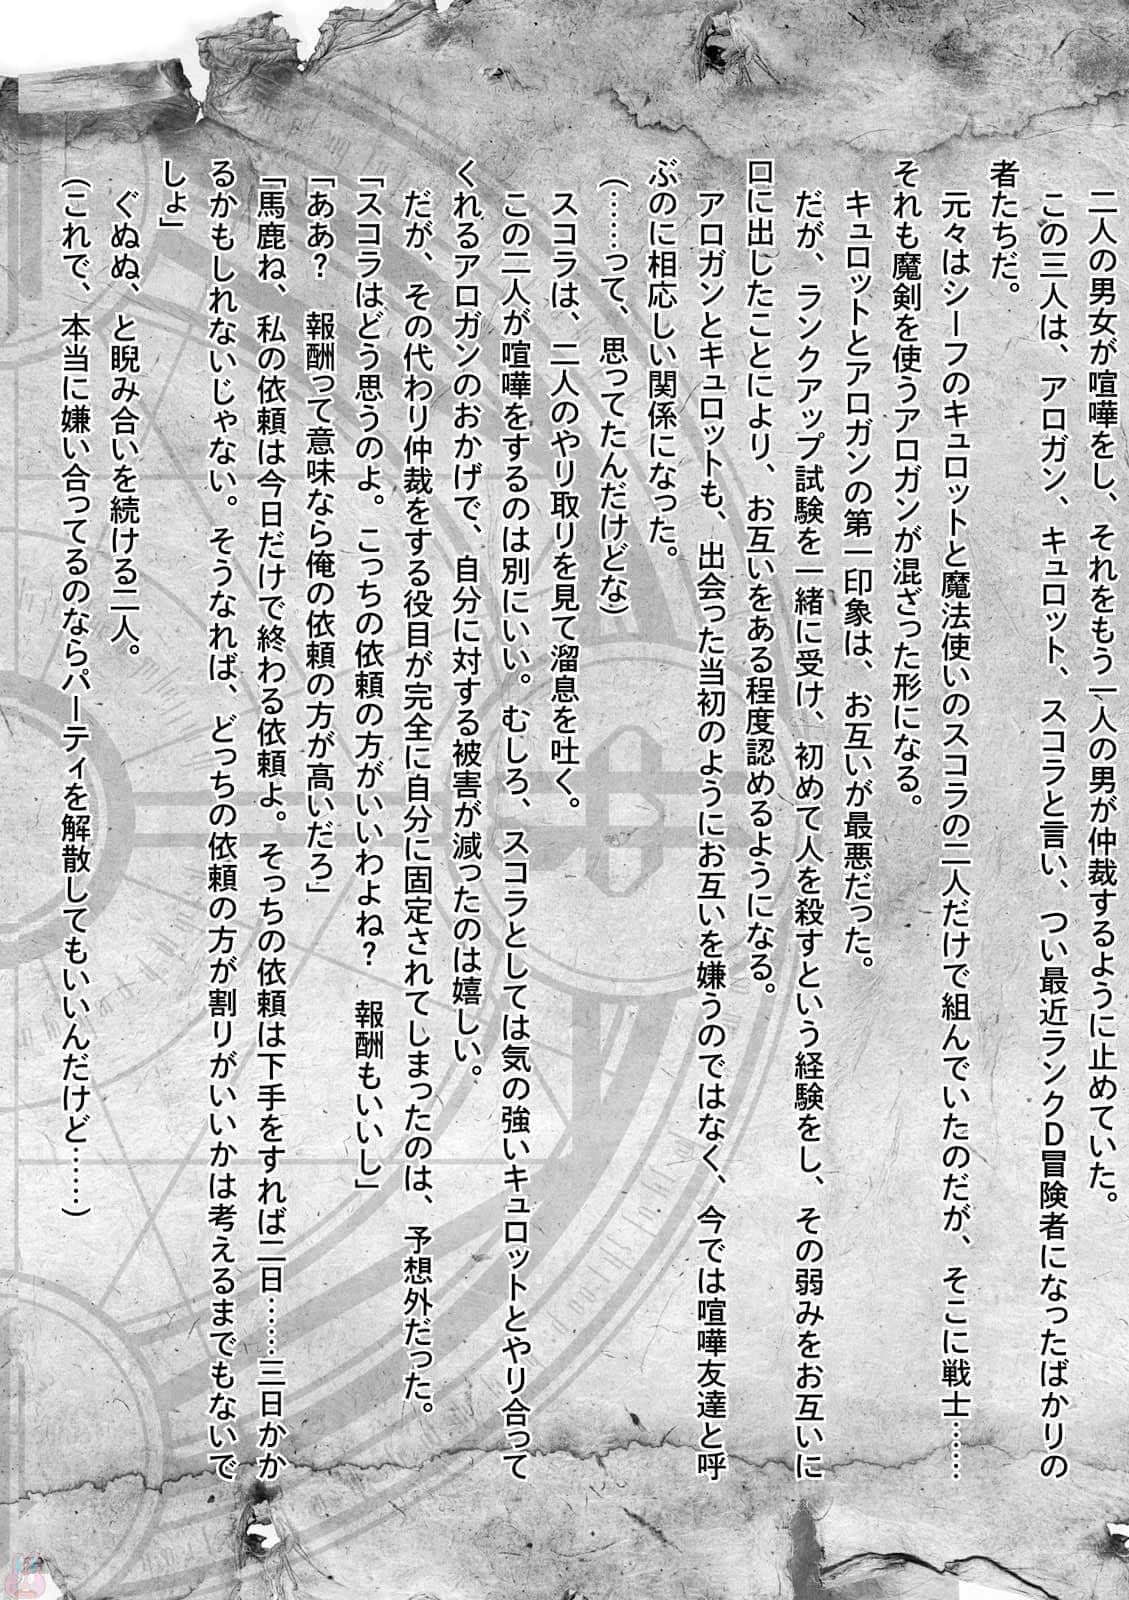 二人の男女が喧嘩をし、それをもう一人の男が仲裁するように止めていた。
　この三人は、アロガン、キュロット、スコラと言い、つい最近ランクD冒険者になったばかりの
者たちだ。
　元々はシーフのキュロットと魔法使いのスコラの二人だけで組んでいたのだが、そこに戦士……
それも魔剣を使うアロガンが混ざった形になる。
　キュロットとアロガンの第一印象は、お互いが最悪だった。
　だが、ランクアップ試験を一緒に受け、初めて人を殺すという経験をし、その弱みをお互いに
口に出したことにより、お互いをある程度認めるようになる。
　アロガンとキュロットも、出会った当初のようにお互いを嫌うのではなく、今では喧嘩友達と呼
ぶのに相応しい関係になった。
（……って、思ってたんだけどな）
　スコラは、二人のやり取りを見て溜息を吐く。
　この二人が喧嘩をするのは別にいい。むしろ、スコラとしては気の強いキュロットとやり合って
くれるアロガンのおかげで、自分に対する被害が減ったのは嬉しい。
　だが、その代わり仲裁をする役目が完全に自分に固定されてしまったのは、予想外だった。
「スコラはどう思うのよ。こっちの依頼の方がいいわよね？　報酬もいいし」
「ああ？　報酬って意味なら俺の依頼の方が高いだろ」
「馬鹿ね、私の依頼は今日だけで終わる依頼よ。そっちの依頼は下手をすれば二日……三日かか
るかもしれないじゃない。そうなれば、どっちの依頼の方が割りがいいかは考えるまでもないで
しょ」
　ぐぬぬ、と睨み合いを続ける二人。
（これで、本当に嫌い合ってるのならパーティを解散してもいいんだけど……）